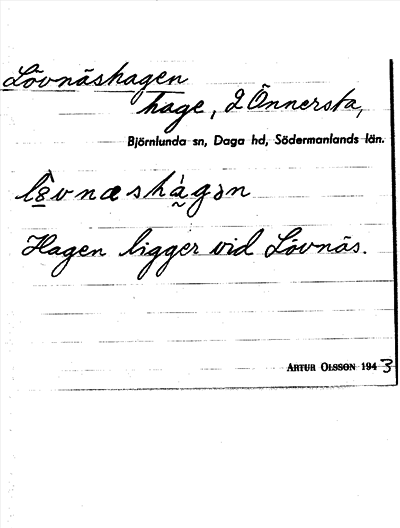 Lövnäshagen
hage, 2 Önnersta,
Björnlunda sn, Daga hd, Södermanlands län.
Hagen ligger vid Lövnäs.
ARTUR OLSSON 1943